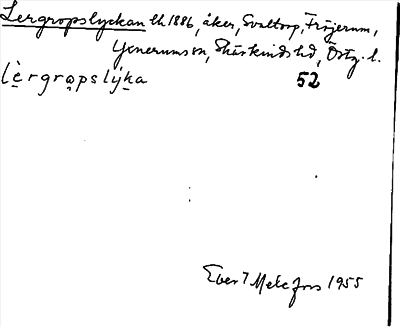 Lergropslyckan lh 1886, åker, Svaltorp, Fröjerum,
Yxnerums sn, Skärkinds hd, Östg. l.
lè̠rgro̠pslýk̠a 52
Evert Melefors 1955